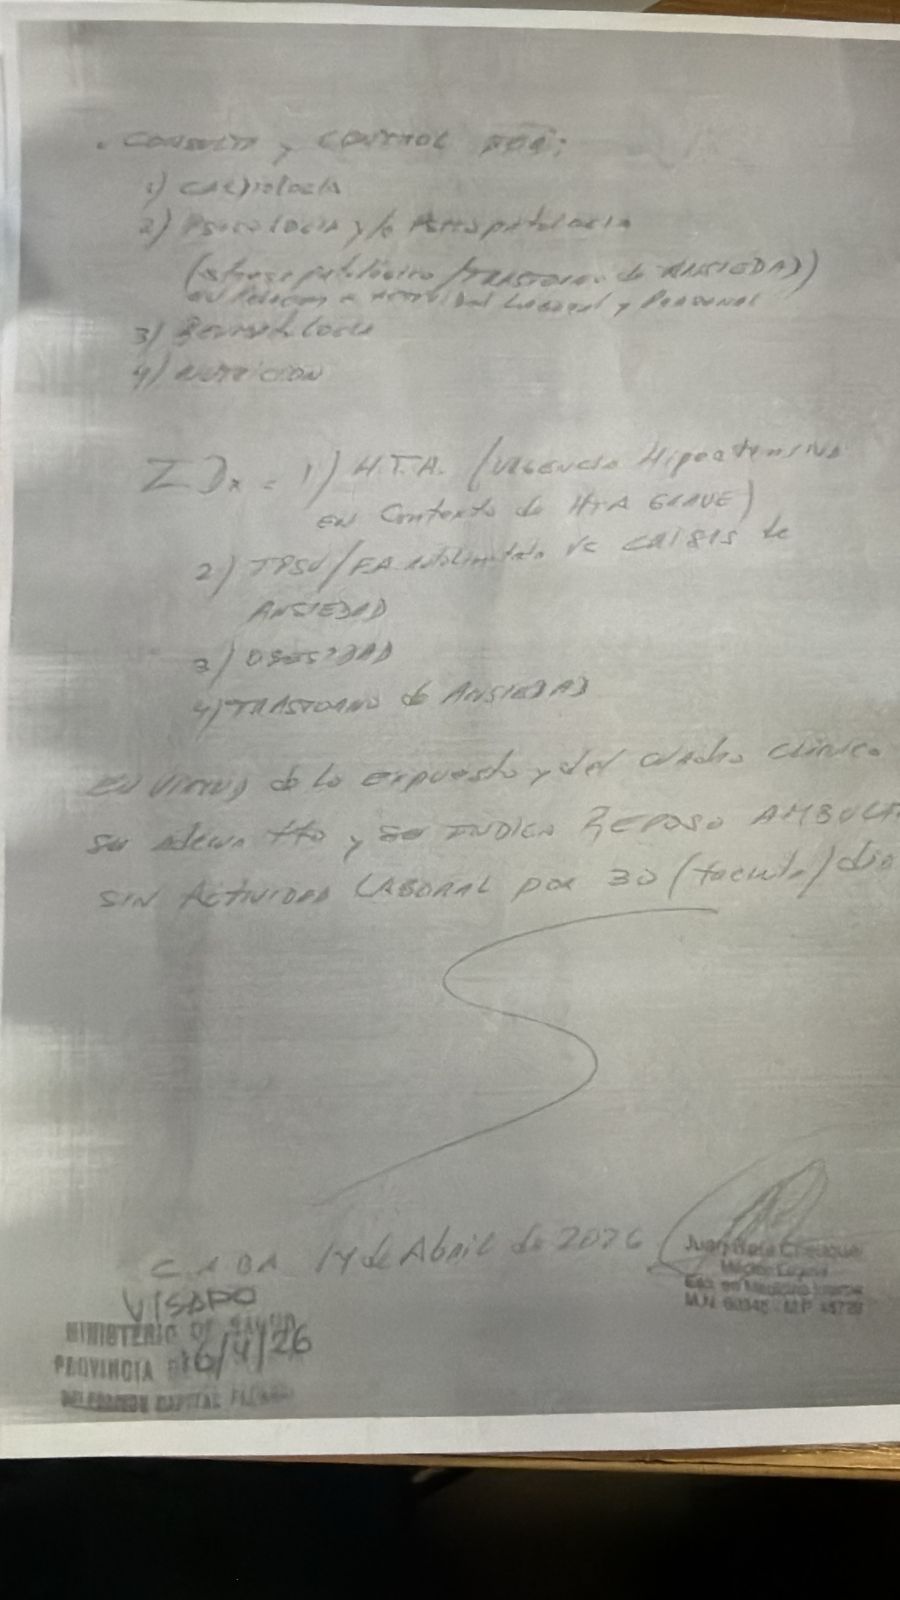 . CONSULTA y CONTROL POR:
1) CARDIOLOGIA
2) Psicologia y/o Psicopatologia
(stress patologico / TRASTORNO de ANSIEDAD)
en Relacion a Actividad Laboral y Personal
3)
4) NUTRICION
IDx = 1) H.T.A. (URGENCIA Hipertensiva
EN Contexto de HTA GRAVE)
2) TPSV/FA autolimitada vs CRISIS de
ANSIEDAD
3) OBESIDAD
4) TRASTORNO de ANSIEDAD
EN VIRTUD de lo expuesto y del cuadro Clinico
su tto y se INDICA REPOSO AMBULA
SIN ACTIVIDAD LABORAL por 30 (treinta) dia
CABA 14 de Abril de 2026
Juan
M.N. M.P.
VISADO
MINISTERIO DE SALUD
PROVINCIA 16/4/26
DELEGACION CAPITAL